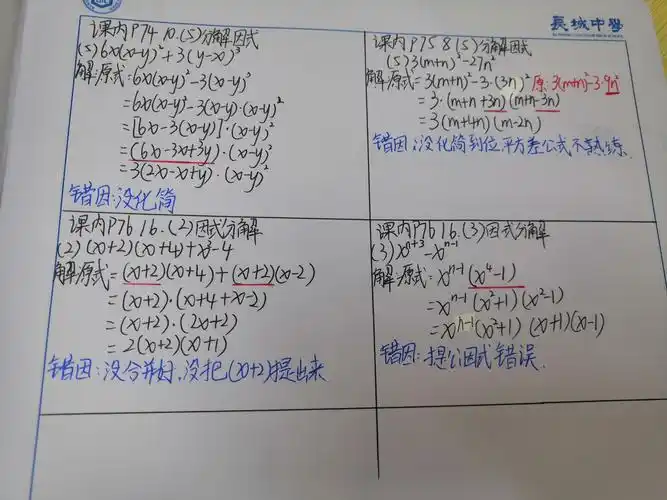 長城中學
课内P74 10.(5)分解因式
(5)6x(x-y)²+3(y-x)³
解:原式=6x(x-y)²-3(x-y)³
=6x(x-y)²-3(x-y)·(x-y)²
=[6x-3(x-y)]·(x-y)²
=(6x-3x+3y)·(x-y)²
=3(2x-x+y)·(x-y)²
错因:没化简
课内P75 8(5)分解因式
(5)3(m+n)²-27n²
解:原式=3(m+n)²-3·(3n)² 原:3(m+n)²-3·9n²
=3·(m+n+3n)(m+n-3n)
=3(m+4n)(m-2n)
错因:没化简到位,平方差公式不熟练.
课内P76 16.(2)因式分解
(2)(x+2)(x+4)+x²-4
解:原式=(x+2)(x+4)+(x+2)(x-2)
=(x+2)·(x+4+x-2)
=(x+2)·(2x+2)
=2(x+2)(x+1)
错因:没合并好,没把(x+2)提出来
课内P76 16.(3)因式分解
(3)xⁿ⁺³-xⁿ⁻¹
解:原式=xⁿ⁻¹(x⁴-1)
=xⁿ⁻¹(x²+1)(x²-1)
=xⁿ⁻¹(x²+1)(x+1)(x-1)
错因:提公因式错误.